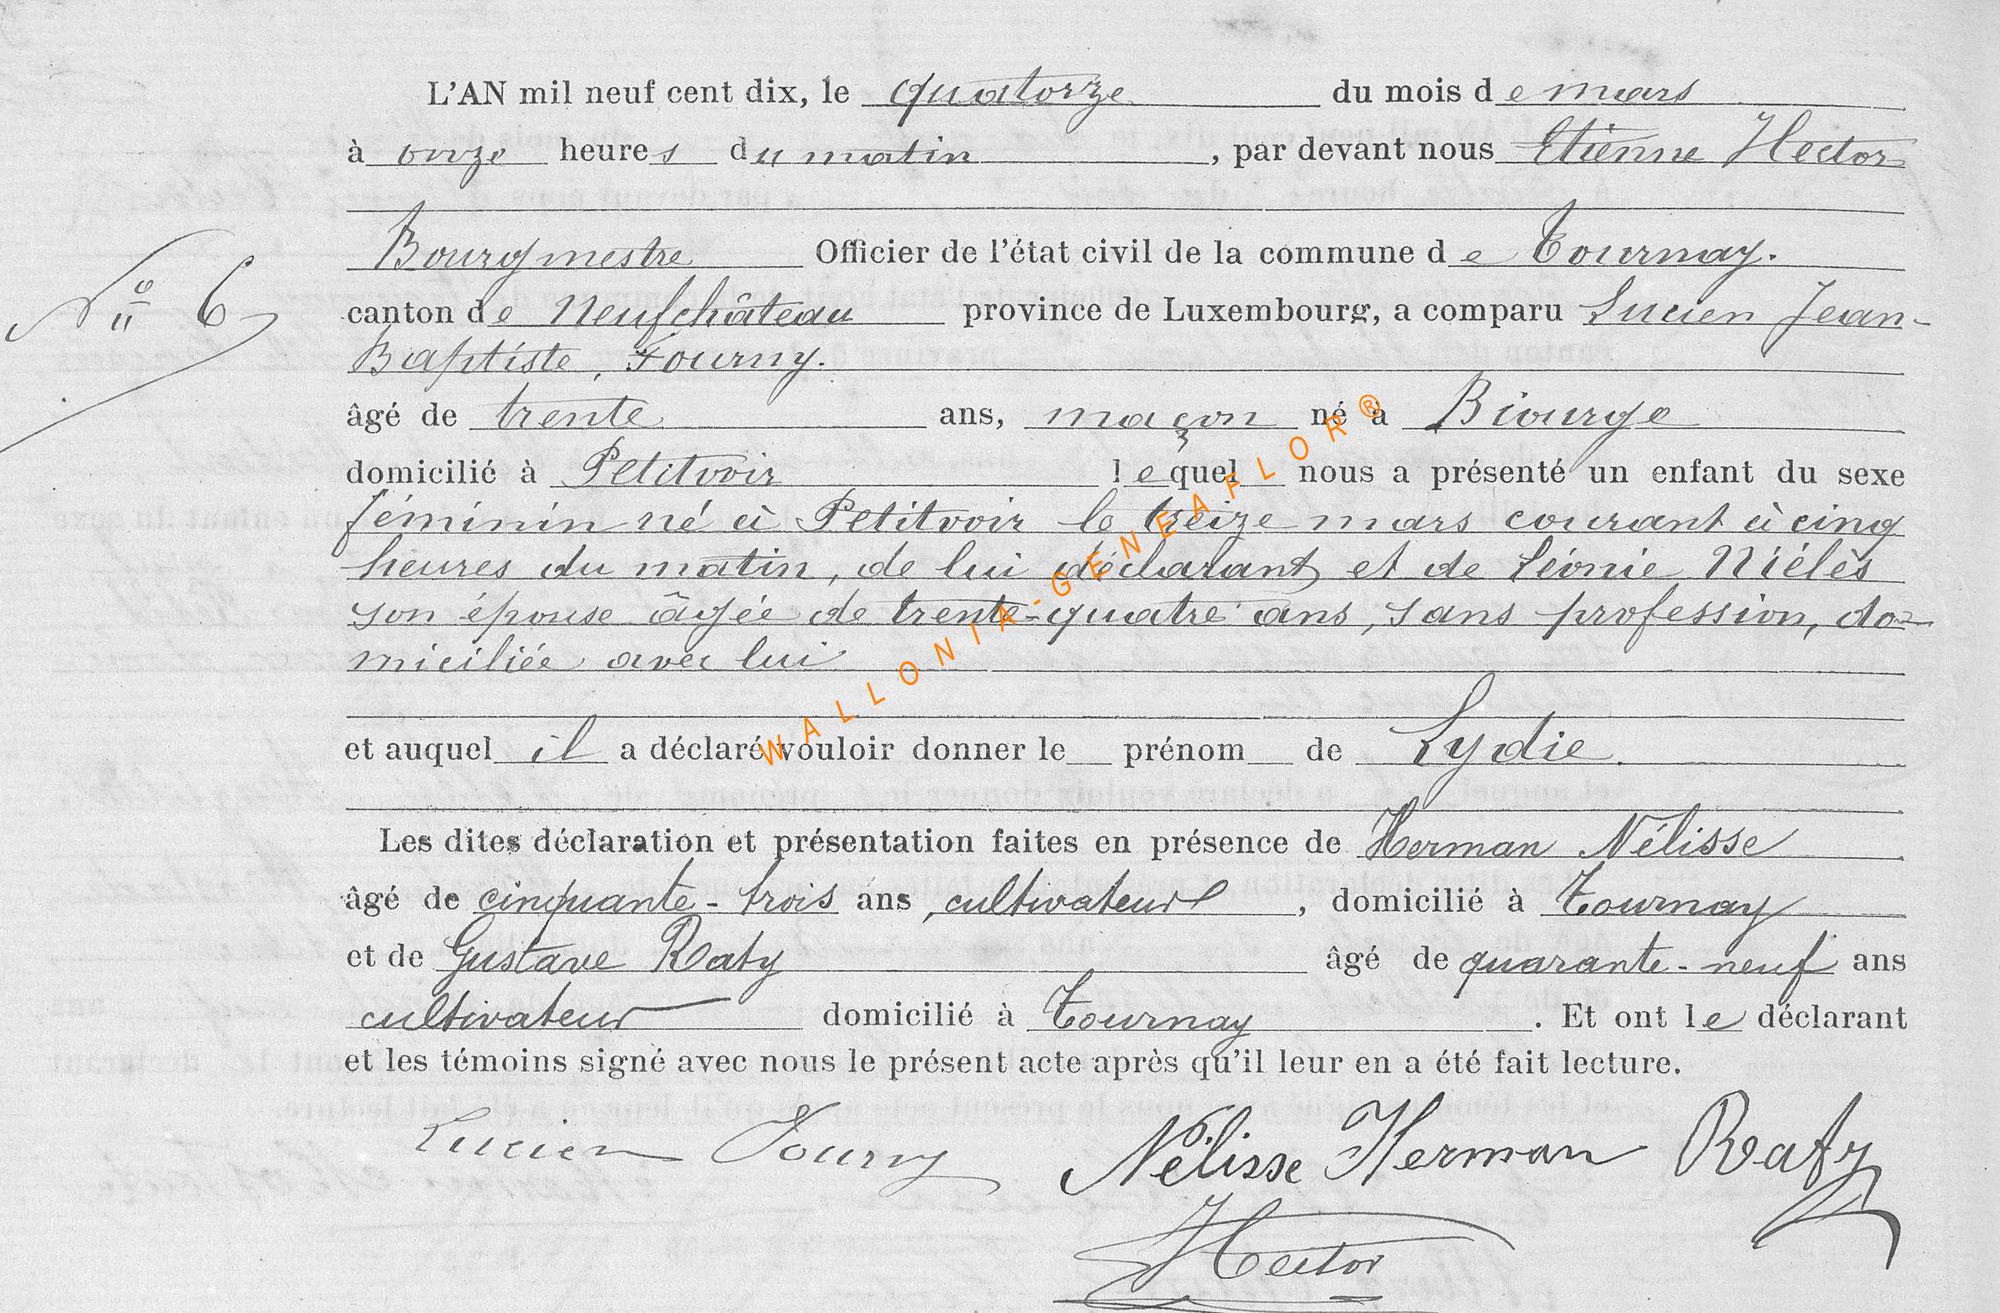 L'AN mil neuf cent dix, le quatorze du mois de mars
à onze heures du matin, par devant nous Etienne Hector
Bourgmestre Officier de l'état civil de la commune de Tournay.
N° 6
canton de Neufchâteau province de Luxembourg, a comparu Lucien Jean-
Baptiste, Fourny.
âgé de trente ans, maçon né à Biourge
domicilié à Petitvoir lequel nous a présenté un enfant du sexe
féminin né à Petitvoir le treize mars courant à cinq
heures du matin, de lui déclarant et de Léonie Niélès
son épouse âgée de trente-quatre ans, sans profession, do-
miciliée avec lui
et auquel il a déclaré vouloir donner le prénom de Lydie.
Les dites déclaration et présentation faites en présence de Herman Nélisse
âgé de cinquante-trois ans, cultivateur, domicilié à Tournay
et de Gustave Raty âgé de quarante-neuf ans
cultivateur domicilié à Tournay. Et ont le déclarant
et les témoins signé avec nous le présent acte après qu'il leur en a été fait lecture.
Lucien Fourny Nélisse Herman Raty
Hector
WALLONIA-GENEAFLOR®